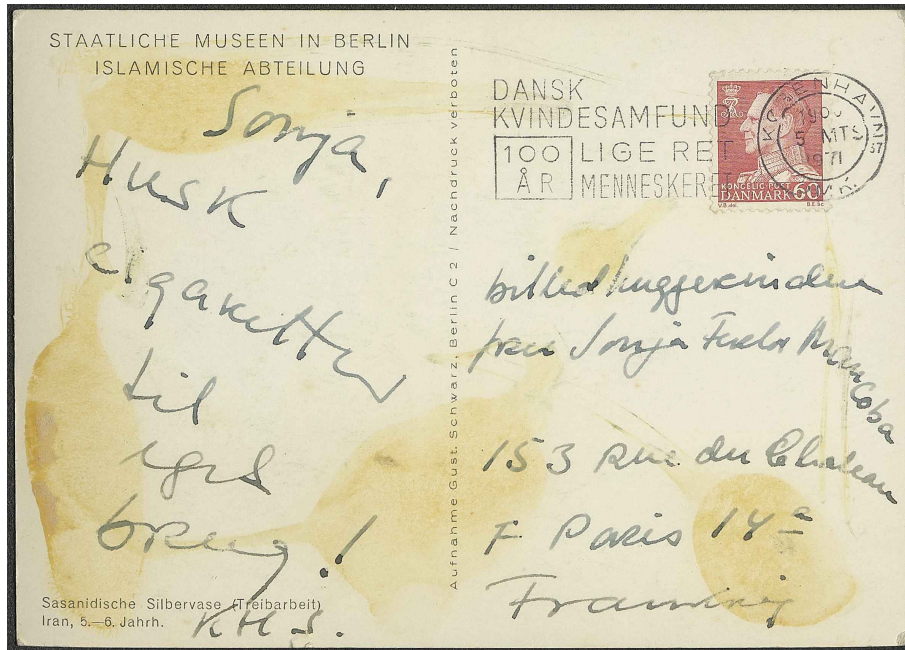 STAATLICHE MUSEEN IN BERLIN
ISLAMISCHE ABTEILUNG
Sonja,
Husk
cigaretter
til
eget
brug!
KHS.
Sasanidische Silbervase (Treibarbeit)
Iran, 5.—6. Jahrh.
Aufnahme Gust. Schwarz, Berlin C 2 / Nachdruck verboten
DANSK
KVINDESAMFUND
100 ÅR
LIGE RET
MENNESKERET
KØBENHAVN
37
5 MTS
1971
KONGELIG POST
DANMARK 60
billedhuggerinden
fru Sonja Ferlov Mancoba
153 Rue du Chateau
F Paris 14e
Frankrig